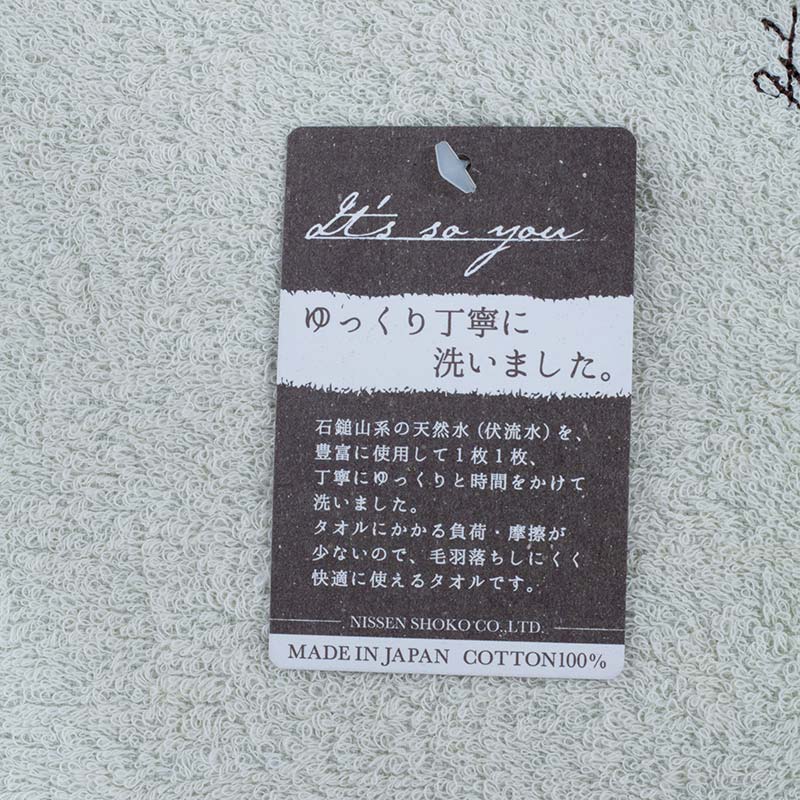 It's so you
ゆっくり丁寧に
洗いました。
石鎚山系の天然水（伏流水）を、
豊富に使用して1枚1枚、
丁寧にゆっくりと時間をかけて
洗いました。
タオルにかかる負荷・摩擦が
少ないので、毛羽落ちしにくく
快適に使えるタオルです。
NISSEN SHOKO CO.,LTD.
MADE IN JAPAN COTTON100%